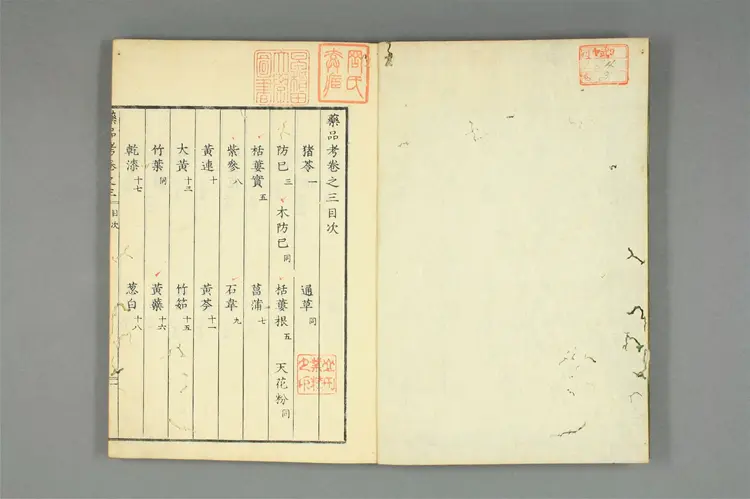 藥品考卷之三目次
猪苓一 通草同
防已三 木防已同 栝蔞根五 天花粉同
栝蔞實五 菖蒲七
紫參八 石韋九
黃連十 黃芩十一
大黃十三 竹茹十五
竹葉同 黃蘗十六
乾漆十七 葱白十八
藥品考卷之三 目次